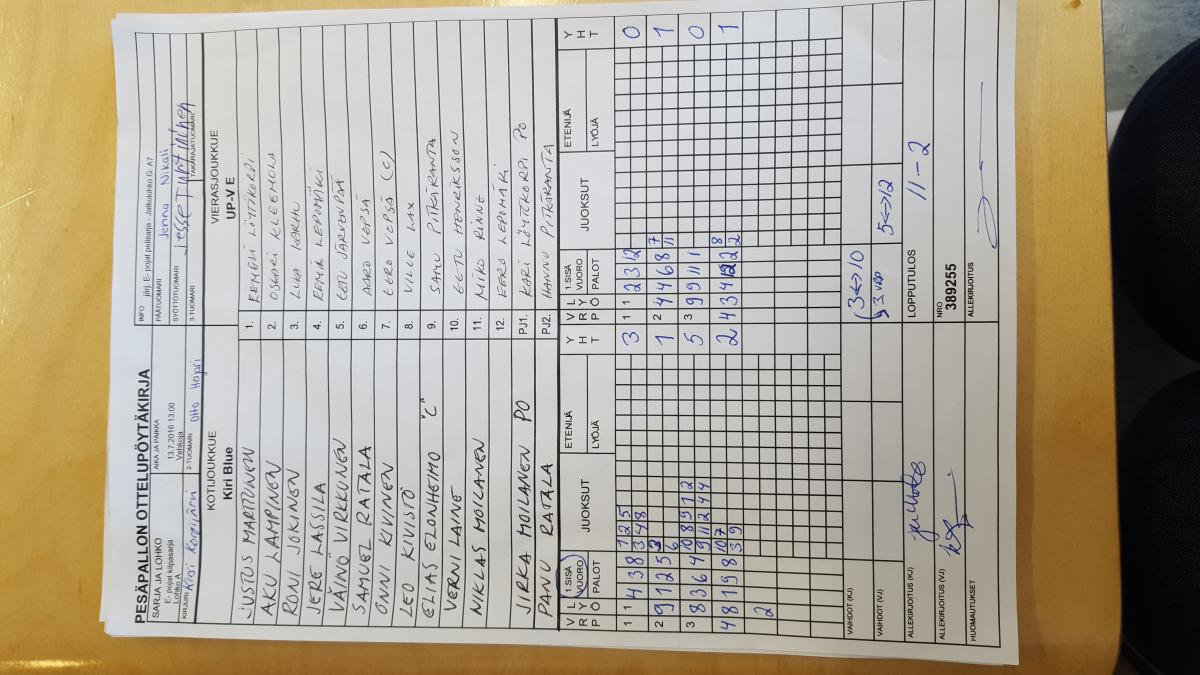 PESÄPALLON OTTELUPÖYTÄKIRJA
SARJA JA LOHKO
E- pojat kilpasarja
Lohko A
AIKA JA PAIKKA
13.7.2016 13:00
Vehkoja
INFO järj. E- pojat pelisarja - Jatkolohko G: A7
PÄÄTUOMARI Jenna Nikali
SYÖTTÖTUOMARI Jesse
KIRJURI Kirsi
2-TUOMARI Otto
3-TUOMARI
TAKARAJATUOMARI
KOTIJOUKKUE
Kiri Blue
VIERASJOUKKUE
UP-V E
JUSTUS MARTTINEN 1. EEMELI LÖYTTIKORPI
AKU LAMPINEN 2. OSKARI KLEEMOLA
RONI JOKINEN 3. LUKA KARHU
JERE LASSILA 4. EEMIL LEPOMÄKI
VÄINÖ VIRKKUNEN 5. EETU JÄRVENPÄÄ
SAMUEL RATALA 6. AARO VEPSÄ
ONNI KIVINEN 7. EERO VEPSÄ (C)
LEO KIVISTÖ 8. VILLE LAX
ELIAS ELONHEIMO "C" 9. SAMU PITKÄRANTA
VERNI LAINE 10. EETU HENRIKSSON
NIKLAS MOILANEN 11. NIKO RINNE
12. EERO LEPOMÄKI
JIRKA MOILANEN PO PJ1. KARI LÖYTTIKORPI PO
PANU RATALA PJ2. HANNU PITKÄRANTA
V R P L Y Ö 1:SISÄ VUORO PALOT JUOKSUT ETENIJÄ LYÖJÄ Y H T V R P L Y Ö 1:SISÄ VUORO PALOT JUOKSUT ETENIJÄ LYÖJÄ Y H T
1 1 4 3 8 1 2 5 3 4 8 3 1 1 2 3 12 0
2 9 1 2 5 3 6 1 2 4 4 6 8 7 11 1
3 8 3 6 4 10 8 9 1 2 9 11 2 4 4 5 3 9 9 11 1 0
4 8 1 9 8 10 7 3 9 2 2 4 3 4 12 2 8 2 1
2
VAIHDOT (KJ) 3<->10
VAIHDOT (VJ) 5<->12
ALLEKIRJOITUS (KJ)
LOPPUTULOS 11-2
ALLEKIRJOITUS (VJ)
NRO
389255
HUOMAUTUKSET
ALLEKIRJOITUS